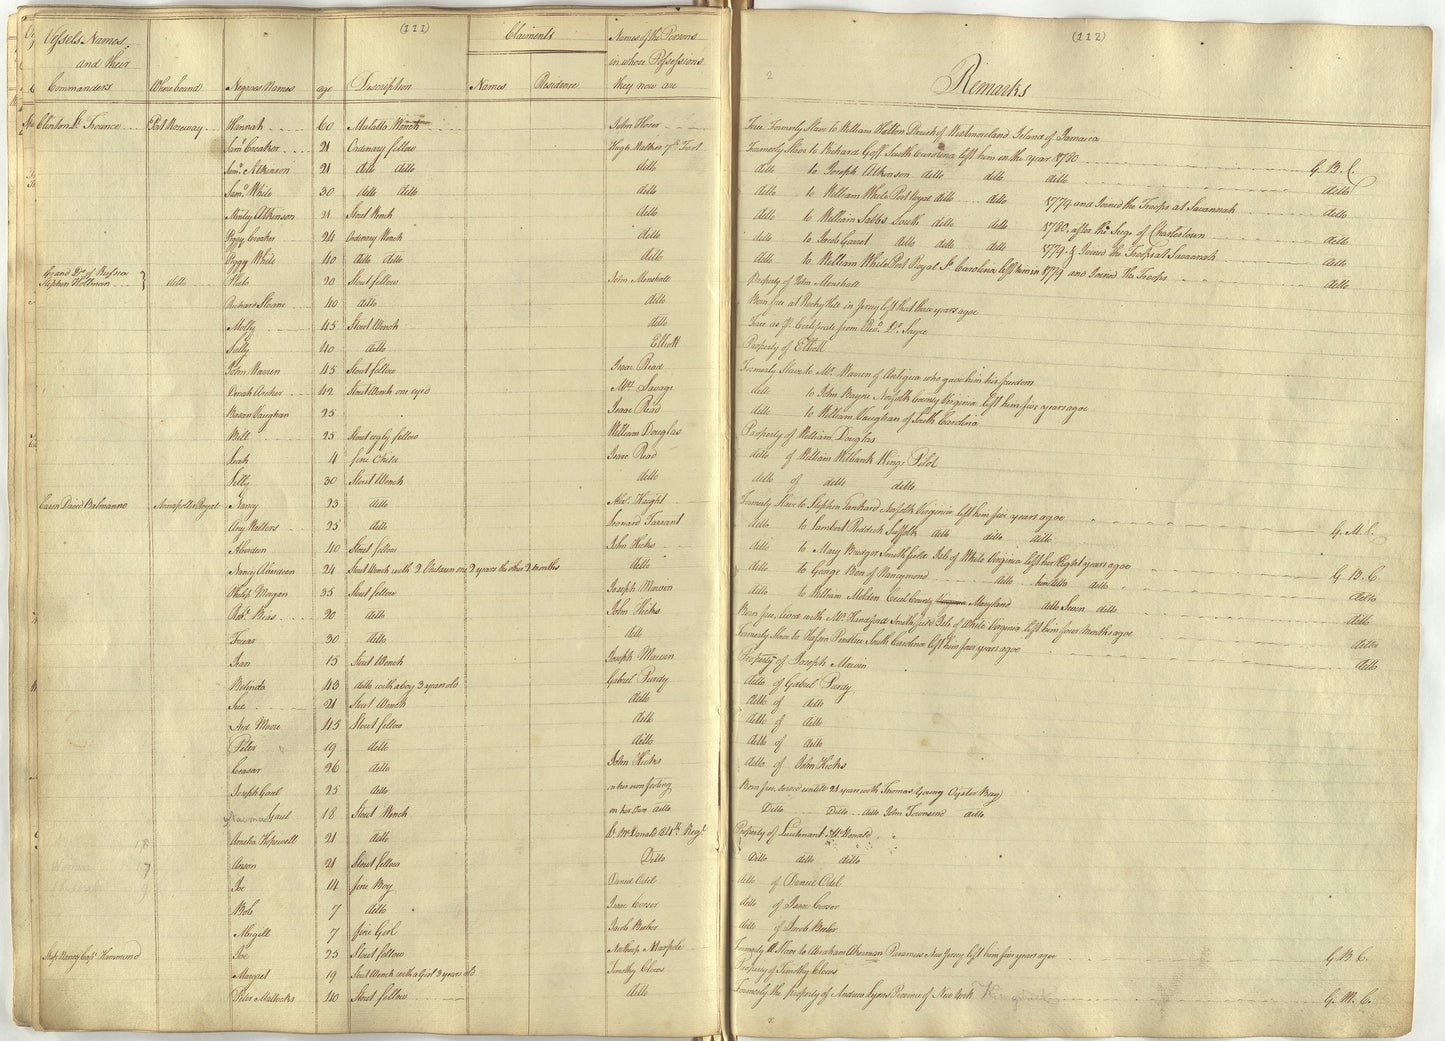 (111)
Vessels Names and their Commanders
Where bound
Negroes Names
age
Description
Claiments
Names
Residence
Names of the Persons in whose Possessions they now are
Clinton Lt. Trounce Port Roseway Hannah 60 Mulatto Wench John Floser
Saml. Creaker 21 Ordinary fellow
Saml. Atkinson 21 ditto ditto ditto
Saml. White 30 ditto ditto ditto
Atkinson 21 Stout Wench ditto
Peggy Creaker 24 Ordinary Wench ditto
Peggy White 40 ditto ditto ditto
Grand Ds. of Russia
Stephen Holtman ditto Pluto 20 Stout fellow John Menshall
Richard Sloane 40 ditto ditto
Molly 45 Stout Wench ditto
Sally 40 ditto Elliott
John Warren 45 Stout fellow Isaac Read
Dinah Archer 42 Stout Wench one eyed Mrs. Savage
Vaughan 25 Isaac Read
Bill 25 Stout ugly fellow William Douglas
Leah 4 fine Child Isaac Read
Silly 30 Stout Wench ditto
Caron David Balmanno Annapolis Royal Nancy 23 ditto Alexr. Haight
Amy Walters 25 ditto Leonard Tarrant
Aberdeen 40 Stout fellow John Hicks
Nancy Aberdeen 24 Stout Wench with 2 Children one 2 years the other 2 months ditto
Philip Morgan 35 Stout fellow Joseph Marvin
Robt. Bias 20 ditto John Hicks
Friar 30 ditto ditto
Jean 15 Stout Wench Joseph Marvin
Belinda 43 ditto with a boy 3 years old Gabriel Purdy
Sue 21 Stout Wench ditto
And. Moore 45 Stout fellow ditto
Peter 19 ditto ditto
Ceasar 26 ditto John Hicks
Joseph Gaul 25 ditto on his own footing
Gaul 18 Stout Wench on her own ditto
Amelia Hopewell 21 ditto Lt. McDonald 84th. Regt.
Anson 21 Stout fellow Ditto
Joe 14 fine Boy Daniel Odel
Bob 7 ditto Isaac Corser
Abigill 7 fine Girl Jacob Beeler
Ship Nancy Capt. Hammond Joe 25 Stout fellow Northrup Marpole
Margret 19 Stout Wench with a Girl 3 years old Timothy Clows
Peter Mattocks 40 Stout fellow ditto
18
7
9
(112)
2
Remarks
Free. Formerly Slave to William Holton Parish of Westmoreland Island of Jamaica
Formerly Slave to Richard Goff South Carolina left him in the year 1780 G. B. C.
ditto to Joseph Atkinson ditto ditto ditto ditto
ditto to William White Port Royal ditto ditto 1779 and Joined the Troops at Savannah ditto
ditto to William Sabbs South ditto ditto 1780, after the Siege of Charlestown ditto
ditto to Jacob Garret ditto ditto ditto 1779 & Joined the Troops at Savannah ditto
ditto to William White Port Royal So. Carolina left him in 1779 and Joined the Troops ditto
Property of John Menshall
Born free at Rocky Hill in Jersey left that three years ago
Free as Pr. Certificate from Revd. Dr. Sayre
Property of Elliott
Formerly Slave to Mr. Warren of Antigua who gave him his freedom
ditto to John Bayne Norfolk County Virginia left him five years ago
ditto to William Vaughan of South Carolina
Property of William Douglas
ditto of William Wilbank Kings Pilot
ditto of ditto ditto
Formerly Slave to Stephen Tankard Norfolk Virginia left him five years ago G. M. C.
ditto to Lambert Reddeck Suffolk ditto ditto ditto
ditto to Mary Bridger Smithfield Isle of White Virginia left her Eight years ago G. B. C.
ditto to George Ben of Nancymond ditto ditto ditto ditto
ditto to William Molden Cecil County Virginia Maryland ditto Seven ditto ditto
Born free, lived with Mr. Handford Smithfield Isle of White Virginia left him four months ago ditto
Formerly Slave to Pendleu South Carolina left him four years ago ditto
Property of Joseph Marvin
ditto of Gabriel Purdy
ditto of ditto
ditto of ditto
ditto of ditto
ditto of John Hicks
Born free, served untill 21 years with Thomas Young Oyster Bay
Ditto Ditto ditto John Townsend ditto
Property of Lieutenant McDonald
Ditto ditto ditto
ditto of Daniel Odel
ditto of Isaac Corser
ditto of Jacob Beeler
Formerly Slave to Abraham Akerman Paramus New Jersey left him five years ago G. B. C.
Property of Timothy Clows
Formerly the property of Andrew Lyons Province of New York G. M. C.